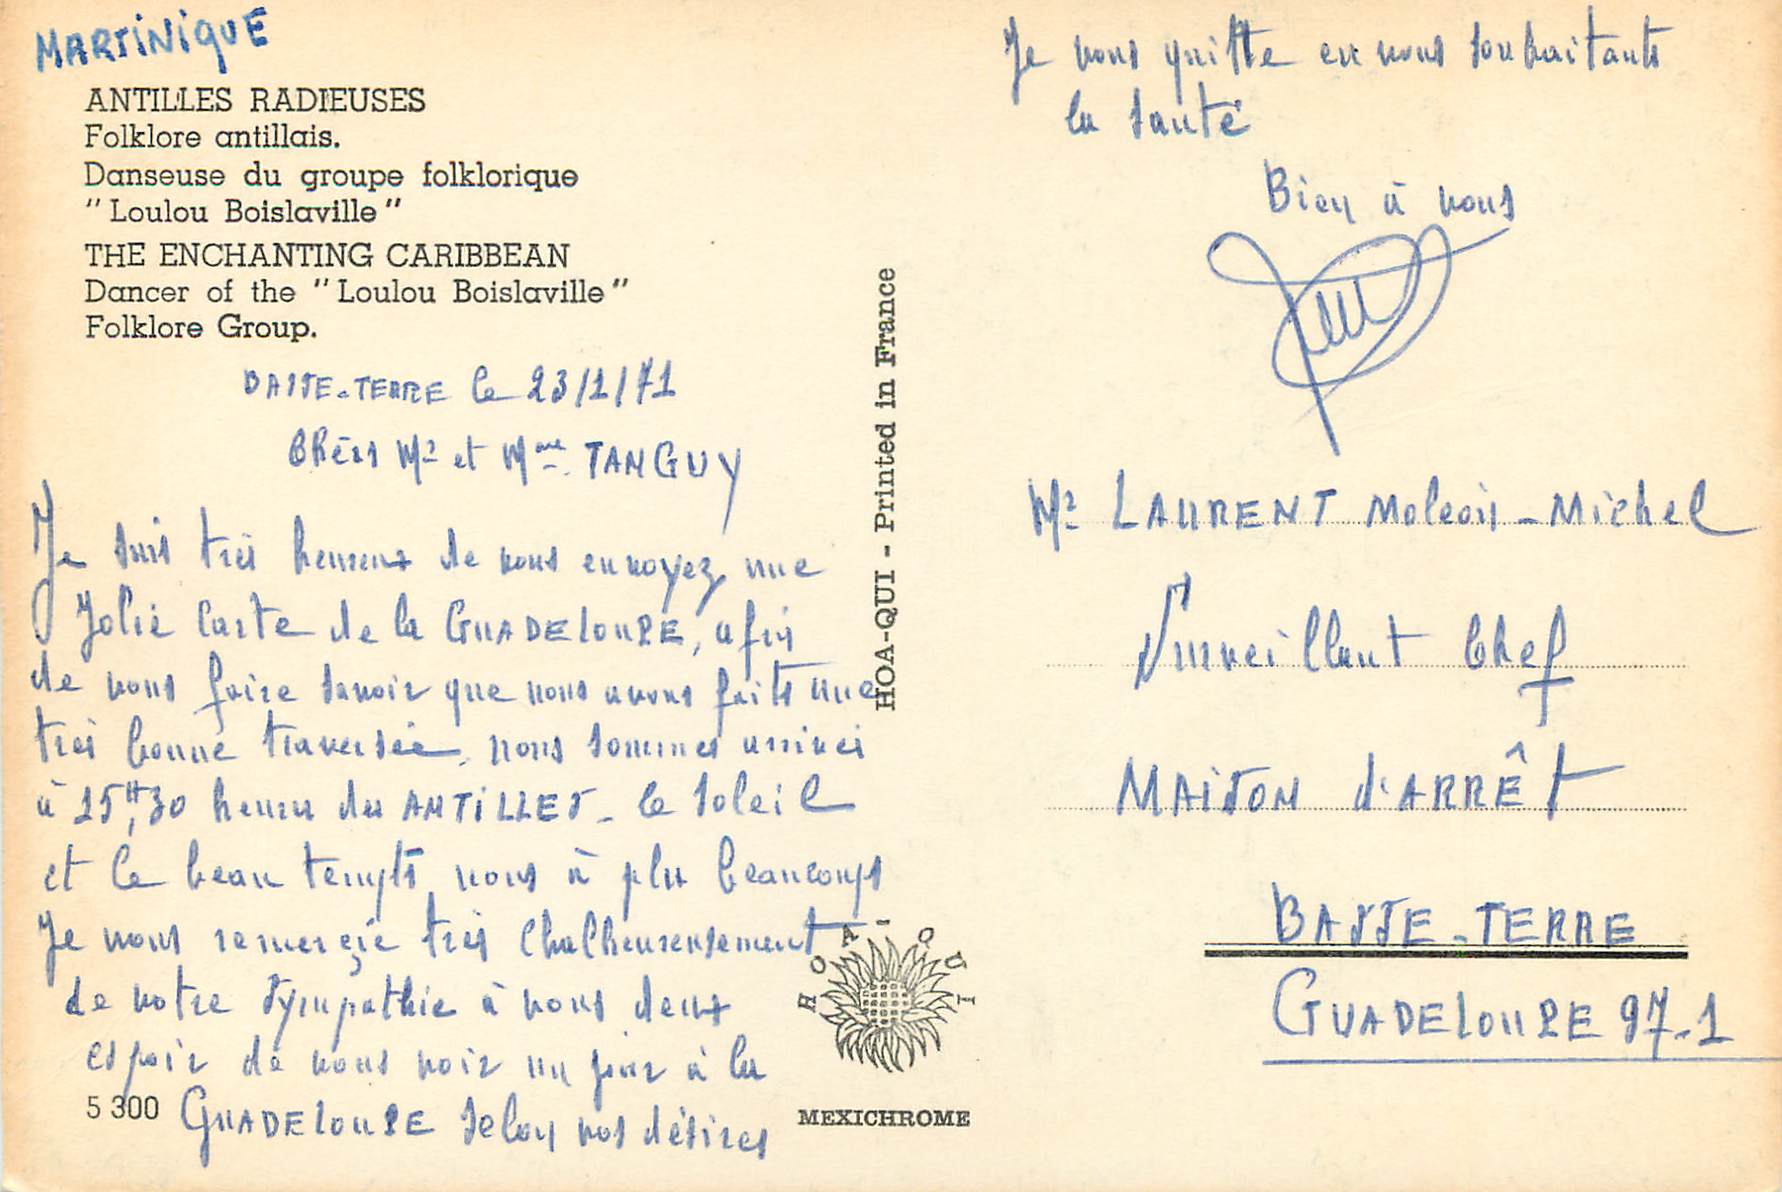 MARTINIQUE
ANTILLES RADIEUSES
Folklore antillais.
Danseuse du groupe folklorique
"Loulou Boislaville"
THE ENCHANTING CARIBBEAN
Dancer of the "Loulou Boislaville"
Folklore Group.
BASSE-TERRE le 23/1/71
Chérs Mr et Mme TANGUY
Je suis très heureux de vous envoyez une
Jolie Carte de la GUADELOUPE, afin
de vous faire savoir que nous avons faits une
très bonne traversée, nous sommes arrivés
à 15H,30 heures des ANTILLES - le soleil
et le beau tempts, nous à plu beaucoups
Je vous remerçie très Chalheureusement
de votre sympathie à vous deux
espoir de vous voir un jour à la
GUADELOUPE selon vos désires
5 300
HOA-QUI - Printed in France
HOA-QUI
MEXICHROME
Je vous quitte en vous souhaitants
la santé
Bien à vous
Mr LAURENT Moleon-Michel
Surveillant Chef
MAISON d'ARRÊT
BASSE-TERRE
GUADELOUPE 97-1